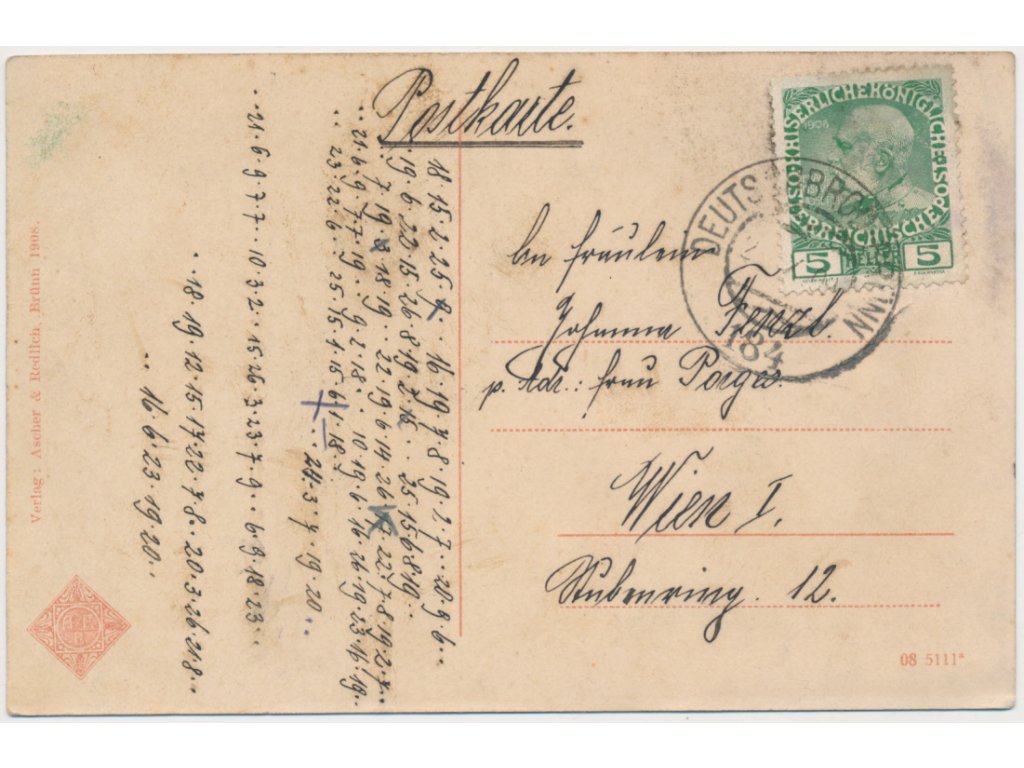 Postkarte.
18·15·2·25·7· ·16·19·7·8·19·2·7· ·20·9·6··
·19·6·23·15·26·8·19·2·15· ·25·15·6·8·19·
·7·19·8·18·19··22·19·6·14·26·17·22·7·8·19·2·7··
··21·6·9·7·7·19··9·2·18··10·19·6·16·26·19·23·16·19·
··23·22·6··25·15·1·15·6·1·18··
··24·3·7·19·20···
··21·6·9·7·7··10·3·2··15·26·3·23·7·9··6·9·18·23··
··18·19·12·15·17·22·7·8··20·3·26·21·8··
··16·6·23·19·20··
Verlag: Ascher & Redlich, Brünn 1908.
KAISERLICHE KÖNIGLICHE
ÖSTERREICHISCHE POST
1908
5 HELLER 5
DEUTSCHBROD BRÜNN
184
An Fräulein
Johanna Fenzl.
p. Adr.: Frau Porges.
Wien I.
Stubenring. 12.
08 5111*